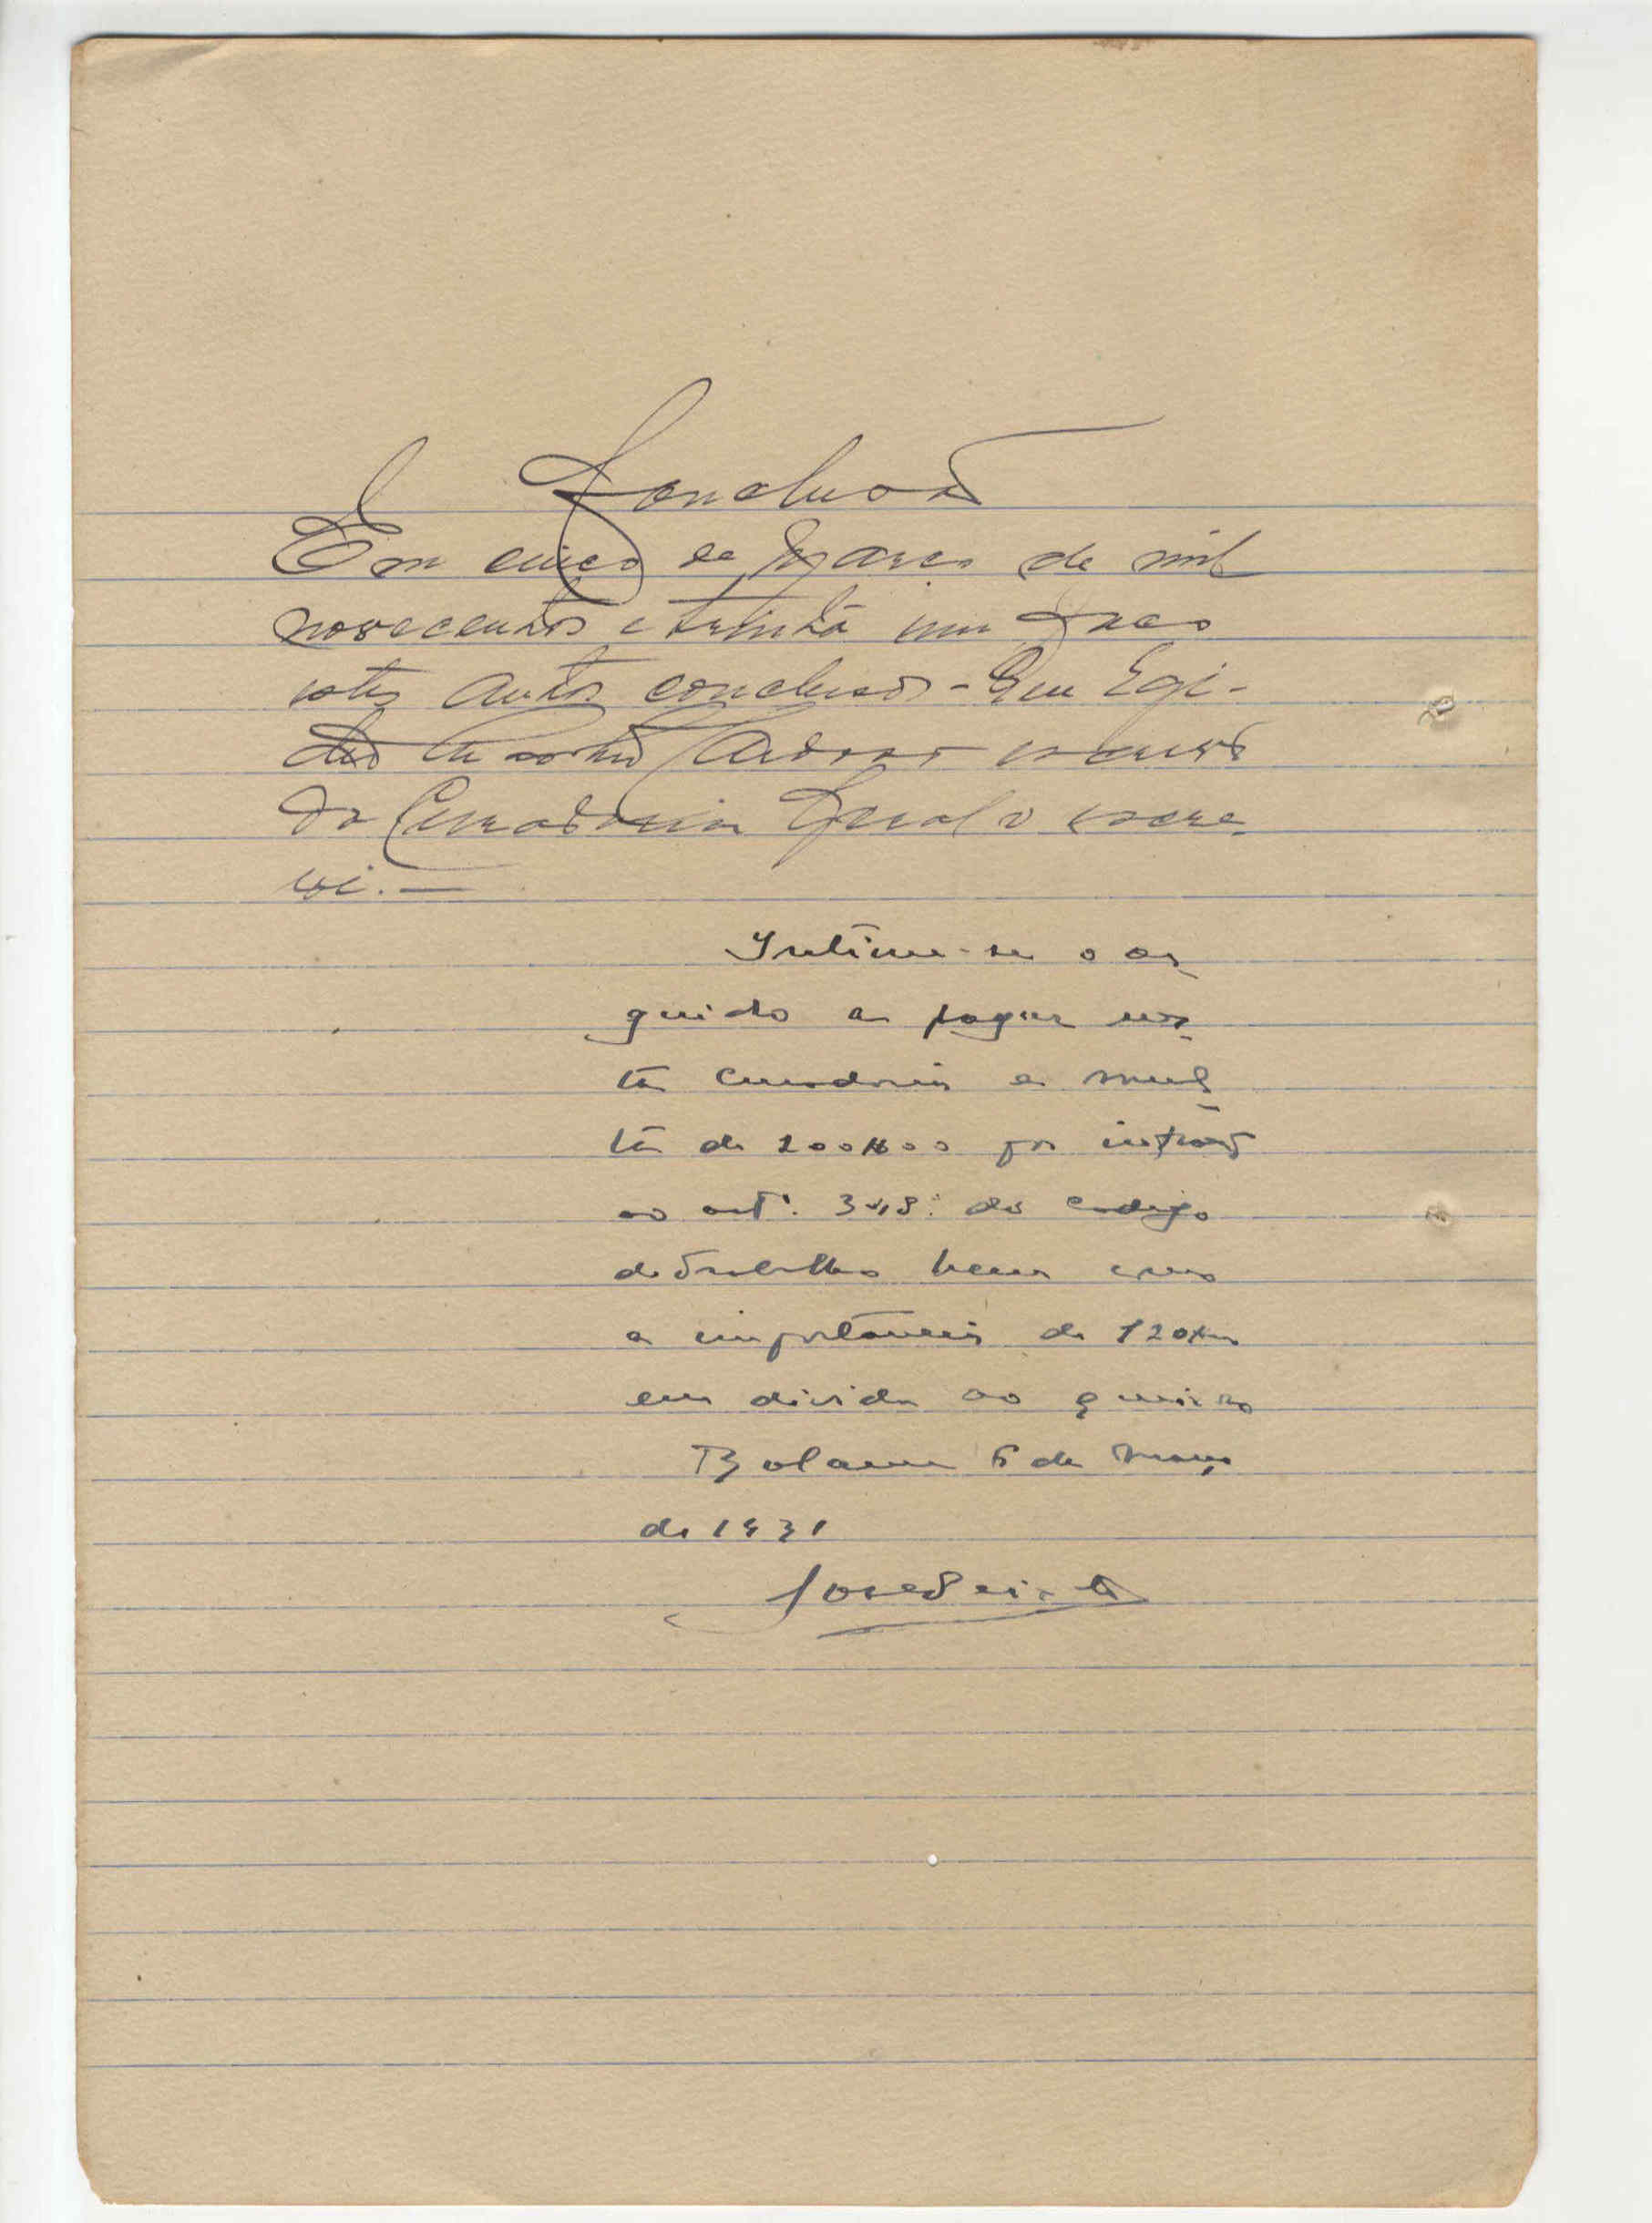 Conclusão
Em cinco de Março de mil
novecentos e trinta um faço
estes autos conclusos - Eu Egi-
dio escrivão
da Curadoria Geral o escre-
vi. —
Intime-se o ar-
guido a pagar nes-
ta curadoria a mul-
ta de 200$00 por infração
ao artº. 348º do codigo
do Trabalho bem como
a importancia de 120$00
em divida ao queixoso
Bolama 5 de Março
de 1931